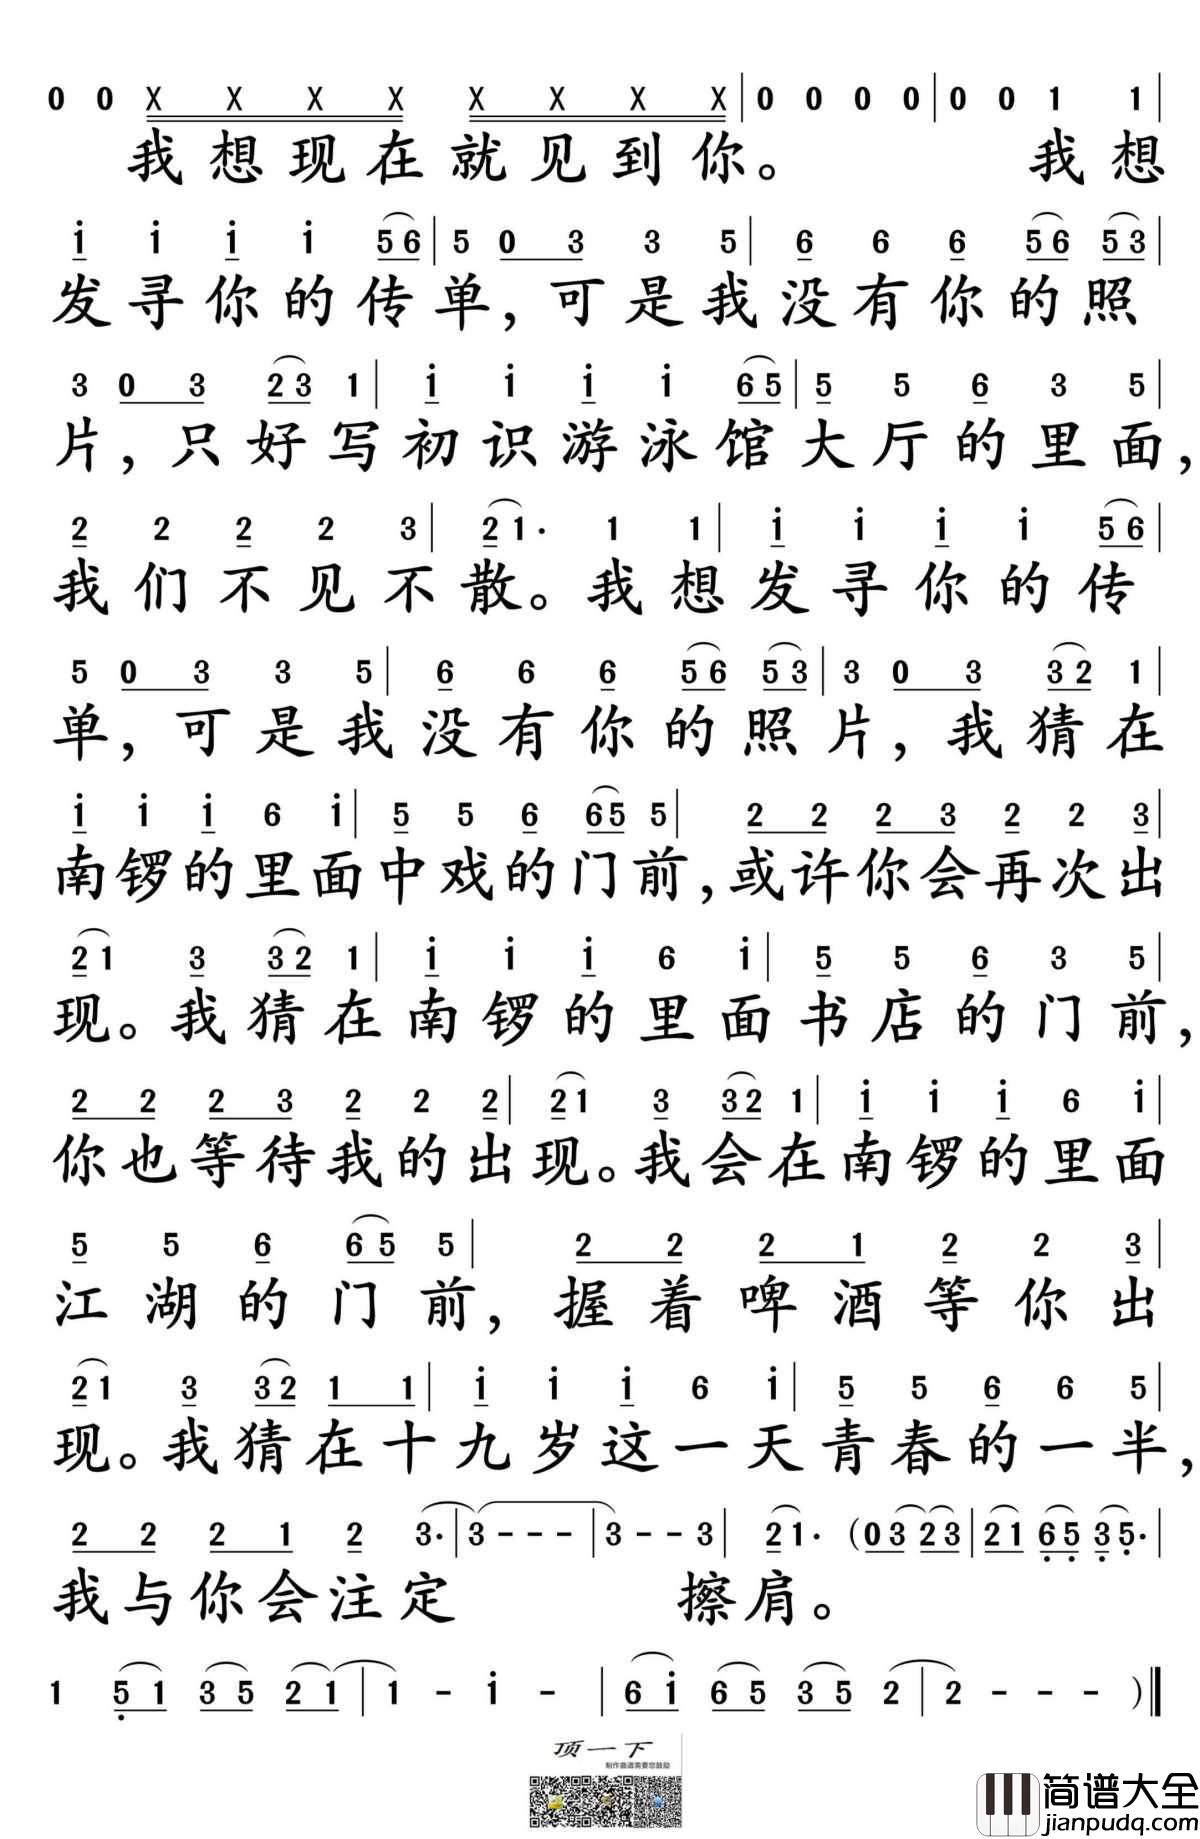 0 0 X X X X X X X X | 0 0 0 0 | 0 0 1 1 |
我想现在就见到你。 我想
i i i i 5 6 | 5 0 3 3 5 | 6 6 6 5 6 5 3 |
发寻你的传单,可是我没有你的照
3 0 3 2 3 1 | i i i i 6 5 | 5 5 6 3 5 |
片,只好写初识游泳馆大厅的里面,
2 2 2 2 3 | 2 1· 1 1 | i i i i 5 6 |
我们不见不散。我想发寻你的传
5 0 3 3 5 | 6 6 6 5 6 5 3 | 3 0 3 3 2 1 |
单,可是我没有你的照片,我猜在
i i i 6 i | 5 5 6 6 5 5 | 2 2 2 3 2 2 3 |
南锣的里面中戏的门前,或许你会再次出
2 1 3 3 2 1 | i i i 6 i | 5 5 6 3 5 |
现。我猜在南锣的里面书店的门前,
2 2 2 3 2 2 2 | 2 1 3 3 2 1 | i i i 6 i |
你也等待我的出现。我会在南锣的里面
5 5 6 6 5 5 | 2 2 2 1 2 2 3 |
江湖的门前,握着啤酒等你出
2 1 3 3 2 1 1 | i i i 6 i | 5 5 6 6 5 |
现。我猜在十九岁这一天青春的一半,
2 2 2 1 2 3· | 3 - - - | 3 - - 3 | 2 1· (0 3 2 3 | 2 1 6 5 3 5· |
我与你会注定 擦肩。
1 5 1 3 5 2 1 | 1 - i - | 6 i 6 5 3 5 2 | 2 - - - )‖
顶一下
制作曲谱需要您鼓励
简谱大全
jianpudq.com